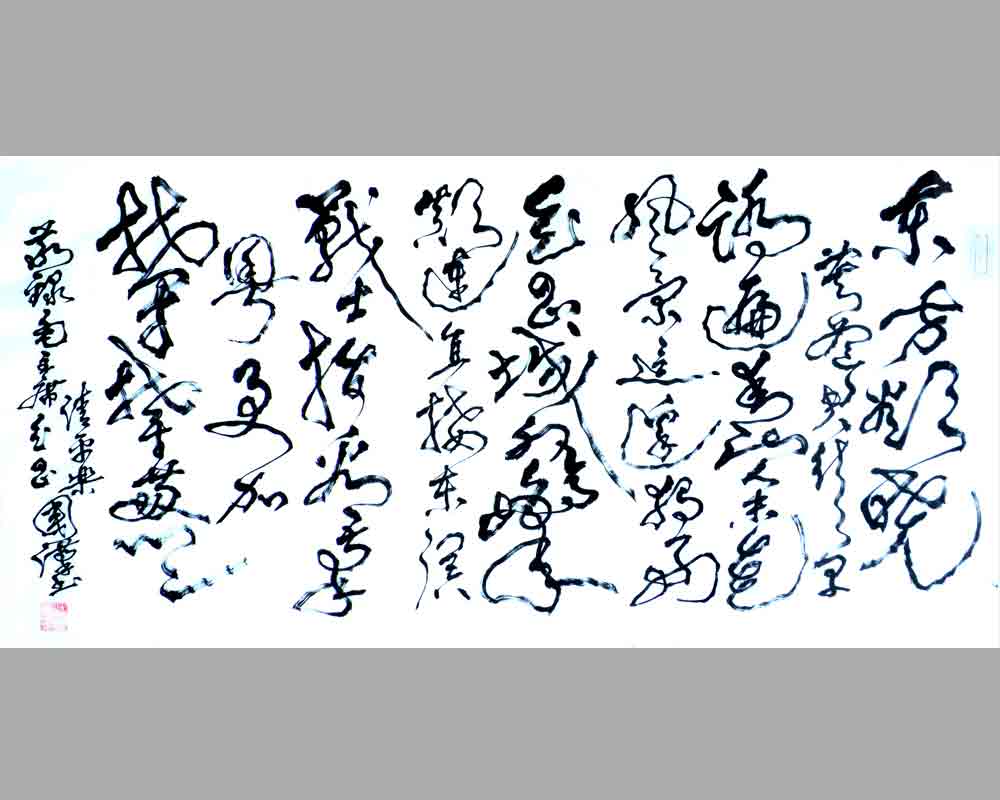 东方欲晓
莫道君行早
踏遍青山人未老
风景这边独好
会昌城外高峰
颠连直接东溟
戰士指看南
粤更加
郁郁葱葱
敬録毛主席会昌
清平樂